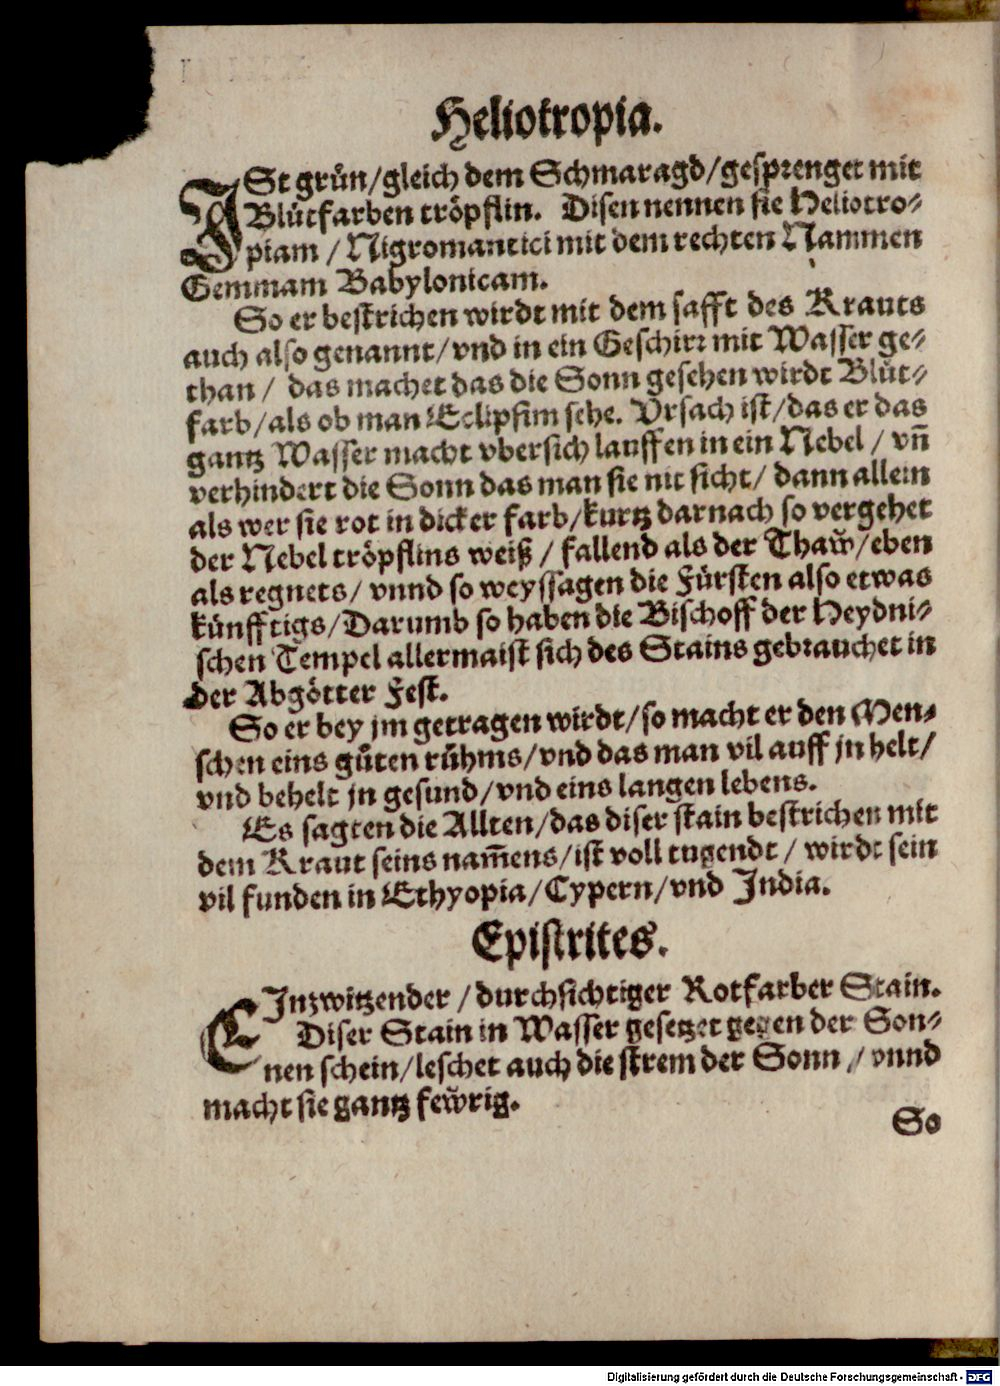 Heliotropia.
ISt grün/gleich dem Schmaragd/gesprenget mit
Blůtfarben tröpflin. Disen nennen sie Heliotro-
piam / Nigromantici mit dem rechten Nammen
Gemmam Babylonicam.
So er bestrichen wirdt mit dem safft des Krauts
auch also genannt/vnd in ein Geschirr mit Wasser ge-
than / das machet das die Sonn gesehen wirdt Blůt-
farb/als ob man Eclipsim sehe. Vrsach ist/das er das
gantz Wasser macht vbersich lauffen in ein Nebel / vn̄
verhindert die Sonn das man sie nit sicht/ dann allein
als wer sie rot in dicker farb/kurtz darnach so vergehet
der Nebel tröpflins weiß / fallend als der Thaw̌/eben
als regnets/ vnnd so weyssagen die Fürsten also etwas
künfftigs/Darumb so haben die Bischoff der Heydni-
schen Tempel allermaist sich des Stains gebrauchet in
der Abgötter Fest.
So er bey jm getragen wirdt/so macht er den Men-
schen eins gůten růhms/vnd das man vil auff jn helt/
vnd behelt jn gesund/vnd eins langen lebens.
Es sagten die Allten/das diser stain bestrichen mit
dem Kraut seins nam̄ens/ist voll tugendt / wirdt sein
vil funden in Ethyopia/Cypern/vnd India.
Epistrites.
EInzwitzender /durchsichtiger Rotfarber Stain.
Diser Stain in Wasser gesetzet gegen der Son-
nen schein/leschet auch die strem der Sonn / vnnd
macht sie gantz few̌rig.
So
Digitalisierung gefördert durch die Deutsche Forschungsgemeinschaft - DFG